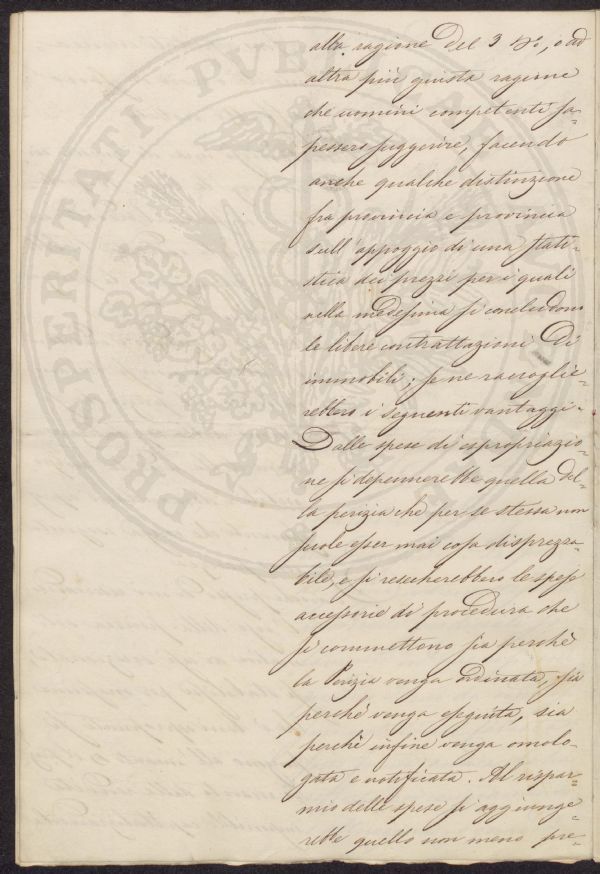 alla ragione del 3 %, o ad
altra più giusta ragione
che uomini competenti sa=
pessero suggerire, facendo
anche qualche distinzione
fra provincia e provincia
sull'appoggio di una stati=
stica dei prezzi per i quali
nella medesima si concludono
le libere contrattazioni di
immobili; se ne raccoglie=
rebbero i seguenti vantaggi.
Dalle spese di espropriazio=
ne si depennerebbe quella del=
la perizia che per se stessa non
suole esser mai cosa disprezza=
bile, e si resecherebbero le spese
accessorie di procedura che
si commettono sia perchè
la Perizia venga ordinata, sia
perchè venga eseguita, sia
perchè infine venga omolo=
gata e notificata. Al rispar=
mio delle spese si aggiunge=
rebbe quello non meno pre=
PROSPERITATI PVB